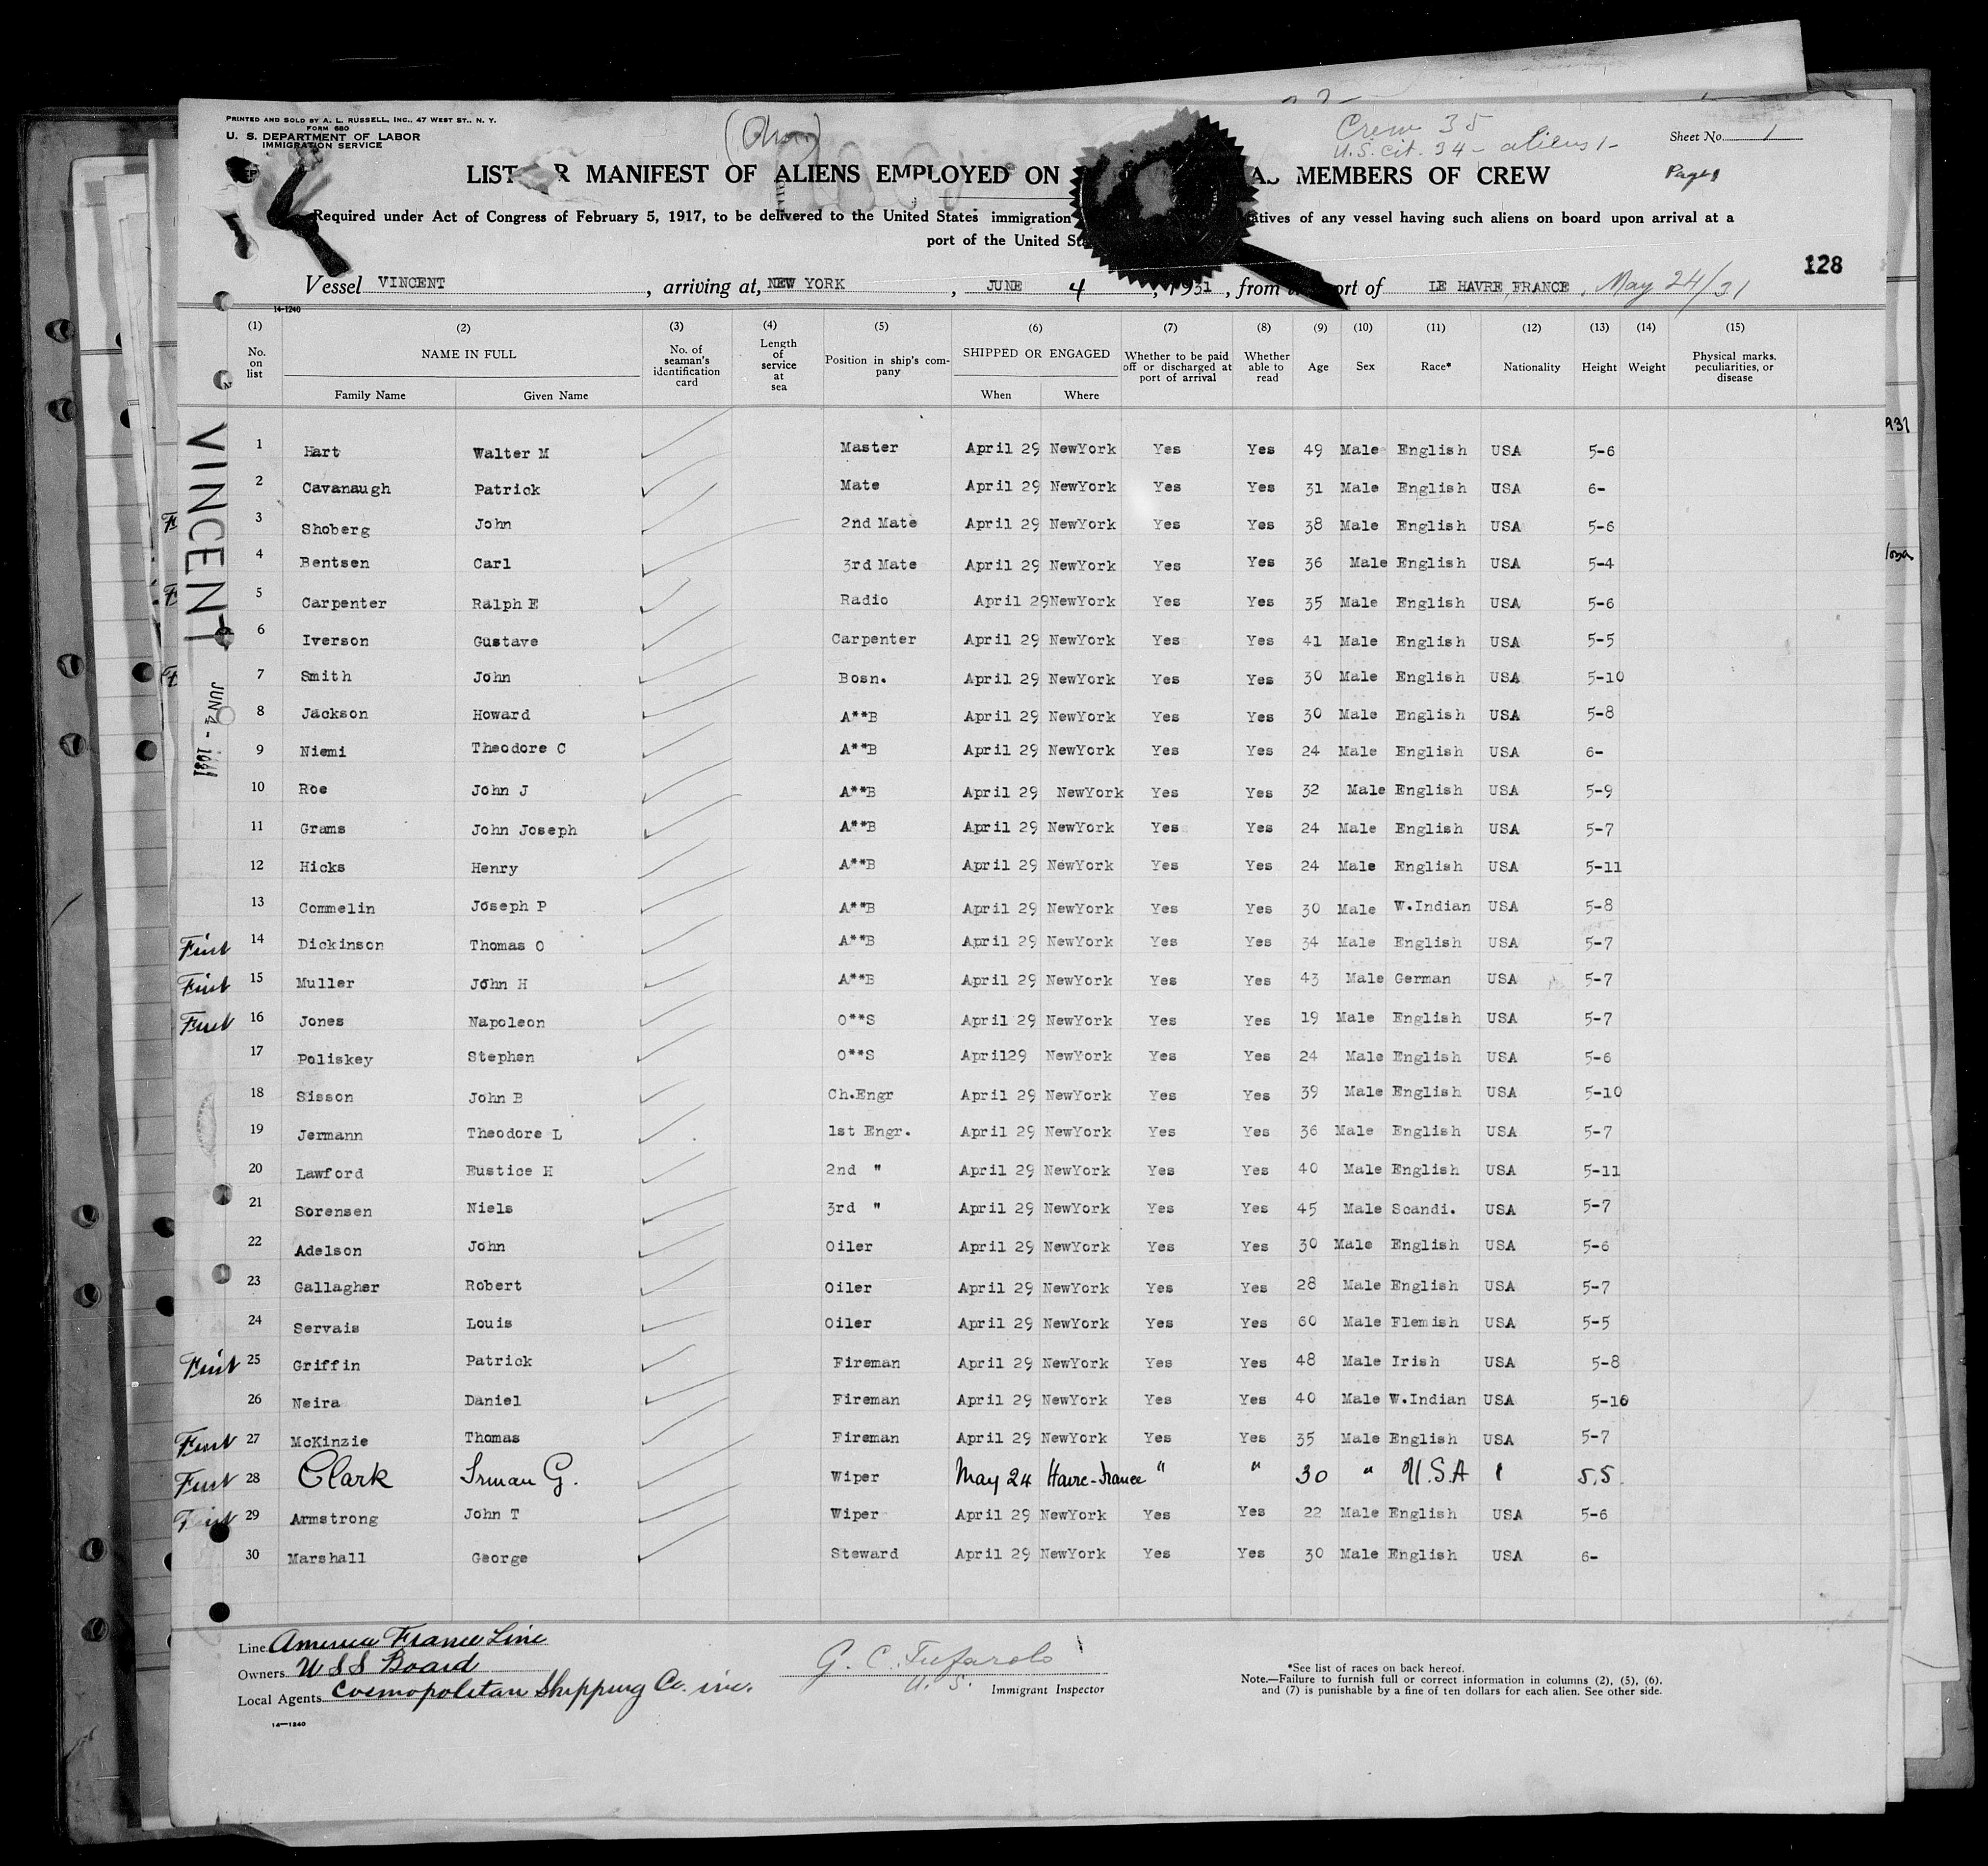 PRINTED AND SOLD BY A. L. RUSSELL, INC., 47 WEST ST., N. Y.
FORM 680
U. S. DEPARTMENT OF LABOR
IMMIGRATION SERVICE
Crew 35
U.S. Cit. 34 - aliens 1-
Sheet No. 1
Page 1
LIST OR MANIFEST OF ALIENS EMPLOYED ON AS MEMBERS OF CREW
Required under Act of Congress of February 5, 1917, to be delivered to the United States immigration atives of any vessel having such aliens on board upon arrival at a
port of the United Sta
128
Vessel VINCENT, arriving at, NEW YORK, JUNE 4, 1931, from the port of LE HAVRE, FRANCE, May 24/31
14-1240
(1) (2) (3) (4) (5) (6) (7) (8) (9) (10) (11) (12) (13) (14) (15)
No. on list NAME IN FULL Family Name Given Name No. of seaman's identification card Length of service at sea Position in ship's company SHIPPED OR ENGAGED When Where Whether to be paid off or discharged at port of arrival Whether able to read Age Sex Race* Nationality Height Weight Physical marks, peculiarities, or disease
VINCENT
JUN 4 - 1931
1 Hart Walter M Master April 29 NewYork Yes Yes 49 Male English USA 5-6
2 Cavanaugh Patrick Mate April 29 NewYork Yes Yes 31 Male English USA 6-
3 Shoberg John 2nd Mate April 29 NewYork Yes Yes 38 Male English USA 5-6
4 Bentsen Carl 3rd Mate April 29 NewYork Yes Yes 36 Male English USA 5-4
5 Carpenter Ralph E Radio April 29 NewYork Yes Yes 35 Male English USA 5-6
6 Iverson Gustave Carpenter April 29 NewYork Yes Yes 41 Male English USA 5-5
7 Smith John Bosn. April 29 NewYork Yes Yes 30 Male English USA 5-10
8 Jackson Howard A**B April 29 NewYork Yes Yes 30 Male English USA 5-8
9 Niemi Theodore C A**B April 29 NewYork Yes Yes 24 Male English USA 6-
10 Roe John J A**B April 29 NewYork Yes Yes 32 Male English USA 5-9
11 Grams John Joseph A**B April 29 NewYork Yes Yes 24 Male English USA 5-7
12 Hicks Henry A**B April 29 NewYork Yes Yes 24 Male English USA 5-11
13 Commelin Joseph P A**B April 29 NewYork Yes Yes 30 Male W.Indian USA 5-8
First 14 Dickinson Thomas O A**B April 29 NewYork Yes Yes 34 Male English USA 5-7
First 15 Muller John H A**B April 29 NewYork Yes Yes 43 Male German USA 5-7
First 16 Jones Napoleon O**S April 29 NewYork Yes Yes 19 Male English USA 5-7
17 Poliskey Stephen O**S April29 NewYork Yes Yes 24 Male English USA 5-6
18 Sisson John B Ch.Engr April 29 NewYork Yes Yes 39 Male English USA 5-10
19 Jermann Theodore L 1st Engr. April 29 NewYork Yes Yes 36 Male English USA 5-7
20 Lawford Eustice H 2nd " April 29 NewYork Yes Yes 40 Male English USA 5-11
21 Sorensen Niels 3rd " April 29 NewYork Yes Yes 45 Male Scandi. USA 5-7
22 Adelson John Oiler April 29 NewYork Yes Yes 30 Male English USA 5-6
23 Gallagher Robert Oiler April 29 NewYork Yes Yes 28 Male English USA 5-7
24 Servais Louis Oiler April 29 NewYork Yes Yes 60 Male Flemish USA 5-5
First 25 Griffin Patrick Fireman April 29 NewYork Yes Yes 48 Male Irish USA 5-8
26 Neira Daniel Fireman April 29 NewYork Yes Yes 40 Male W.Indian USA 5-10
First 27 McKinzie Thomas Fireman April 29 NewYork Yes Yes 35 Male English USA 5-7
First 28 Clark Irman G. Wiper May 24 Havre-France " " 30 " U.S.A 5,5.
First 29 Armstrong John T Wiper April 29 NewYork Yes Yes 22 Male English USA 5-6
30 Marshall George Steward April 29 NewYork Yes Yes 30 Male English USA 6-
Line America France Line
Owners U S S Board
Local Agents Cosmopolitan Shipping Co. inc.
G. C. Tufarolo
U. S. Immigrant Inspector
*See list of races on back hereof.
Note.—Failure to furnish full or correct information in columns (2), (5), (6), and (7) is punishable by a fine of ten dollars for each alien. See other side.
14—1240